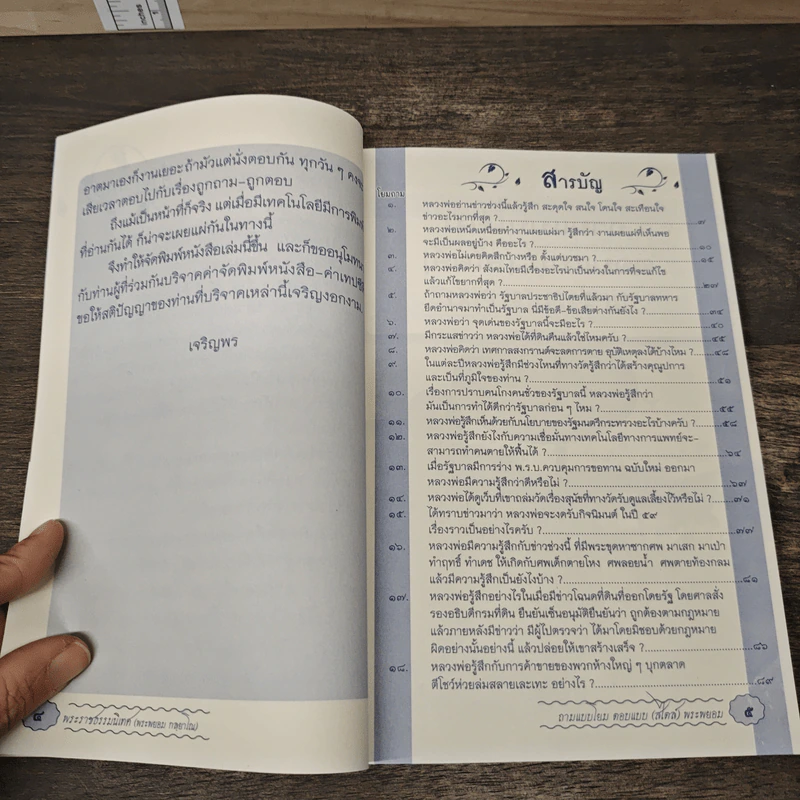 inches
อาตมาเองก็งานเยอะ ถ้ามัวแต่นั่งตอบกัน ทุกวัน ๆ
เสียเวลาตอบไปกับเรื่องถูกถาม-ถูกตอบ
ถึงแม้เป็นหน้าที่ก็จริง แต่เมื่อมีเทคโนโลยีมีการพิมพ์
ที่อ่านกันได้ ก็น่าจะเผยแผ่กันในทางนี้
จึงทำให้จัดพิมพ์หนังสือเล่มนี้ขึ้น และก็ขออนุโมทนา
กับท่านผู้ที่ร่วมกันบริจาคค่าจัดพิมพ์หนังสือ-ค่าเทปซีดี
ขอให้สติปัญญาของท่านที่บริจาคเหล่านี้เจริญงอกงาม
เจริญพร
๔ พระราชธรรมนิเทศ (พระพยอม กลฺยาโณ)
สารบัญ
โยมถาม
๑. หลวงพ่ออ่านข่าวช่วงนี้แล้วรู้สึก สะดุดใจ สนใจ โดนใจ สะเทือนใจ
ข่าวอะไรมากที่สุด ? ๗
๒. หลวงพ่อเหน็ดเหนื่อยทำงานเผยแผ่มา รู้สึกว่า งานเผยแผ่ที่เห็นพอ
จะมีเป็นผลอยู่บ้าง คืออะไร ? ๑๐
๓. หลวงพ่อไม่เคยคิดสึกบ้างหรือ ตั้งแต่บวชมา ? ๑๕
๔. หลวงพ่อคิดว่า สังคมไทยมีเรื่องอะไรน่าเป็นห่วงในการที่จะแก้ไข
แล้วแก้ไขยากที่สุด ? ๒๗
๕. ถ้าถามหลวงพ่อว่า รัฐบาลประชาธิปไตยที่แล้วมา กับรัฐบาลทหาร
ยึดอำนาจมาทำเป็นรัฐบาล นี่มีข้อดี-ข้อเสียต่างกันยังไง ? ๓๔
๖. หลวงพ่อว่า จุดเด่นของรัฐบาลนี้จะมีอะไร ? ๔๐
๗. มีกระแสข่าวว่า หลวงพ่อได้ที่ดินคืนแล้วใช่ไหมครับ ? ๔๕
๘. หลวงพ่อคิดว่า เทศกาลสงกรานต์จะลดการตาย อุบัติเหตุลงได้บ้างไหม ? ๔๘
๙. ในแต่ละปีหลวงพ่อรู้สึกมีช่วงไหนที่ทางวัดรู้สึกว่าได้สร้างคุณูปการ
และเป็นที่ภูมิใจของท่าน ? ๕๑
๑๐. เรื่องการปราบคนโกงคนชั่วของรัฐบาลนี้ หลวงพ่อรู้สึกว่า
มันเป็นการทำได้ดีกว่ารัฐบาลก่อน ๆ ไหม ? ๕๕
๑๑. หลวงพ่อรู้สึกเห็นด้วยกับนโยบายของรัฐมนตรีกระทรวงอะไรบ้างครับ ? ๕๘
๑๒. หลวงพ่อรู้สึกยังไงกับความเชื่อมั่นทางเทคโนโลยีทางการแพทย์จะ-
สามารถทำคนตายให้ฟื้นได้ ? ๖๔
๑๓. เมื่อรัฐบาลมีการร่าง พ.ร.บ.ควบคุมการขอทาน ฉบับใหม่ ออกมา
หลวงพ่อมีความรู้สึกว่าดีหรือไม่ ? ๖๗
๑๔. หลวงพ่อได้ดูเว็บที่เขาถล่มวัดเรื่องสุนัขที่ทางวัดรับดูแลเลี้ยงไว้หรือไม่ ? ๗๑
๑๕. ได้ทราบข่าวมาว่า หลวงพ่อจะงดรับกิจนิมนต์ ในปี ๕๙
เรื่องราวเป็นอย่างไรครับ ? ๗๗
๑๖. หลวงพ่อมีความรู้สึกกับข่าวช่วงนี้ ที่มีพระขุดหาซากศพ มาเสก มาเป่า
ทำฤทธิ์ ทำเดช ให้เกิดกับศพเด็กตายโหง ศพลอยน้ำ ศพตายท้องกลม
แล้วมีความรู้สึกเป็นยังไงบ้าง ? ๘๑
๑๗. หลวงพ่อรู้สึกอย่างไรในเมื่อมีข่าวโฉนดที่ดินที่ออกโดยรัฐ โดยศาลสั่ง
รองอธิบดีกรมที่ดิน ยืนยันเซ็นอนุมัติยืนยันว่า ถูกต้องตามกฎหมาย
แล้วภายหลังมีข่าวว่า มีผู้ไปตรวจว่า ได้มาโดยมิชอบด้วยกฎหมาย
ผิดอย่างนั้นอย่างนี้ แล้วปล่อยให้เขาสร้างเสร็จ ? ๘๖
๑๘. หลวงพ่อรู้สึกกับการค้าขายของพวกห้างใหญ่ ๆ บุกตลาด
ตีโชว์ห่วยล่มสลายเละเทะ อย่างไร ? ๘๙
ถามแบบโยม ตอบแบบ (สไตล์) พระพยอม ๕